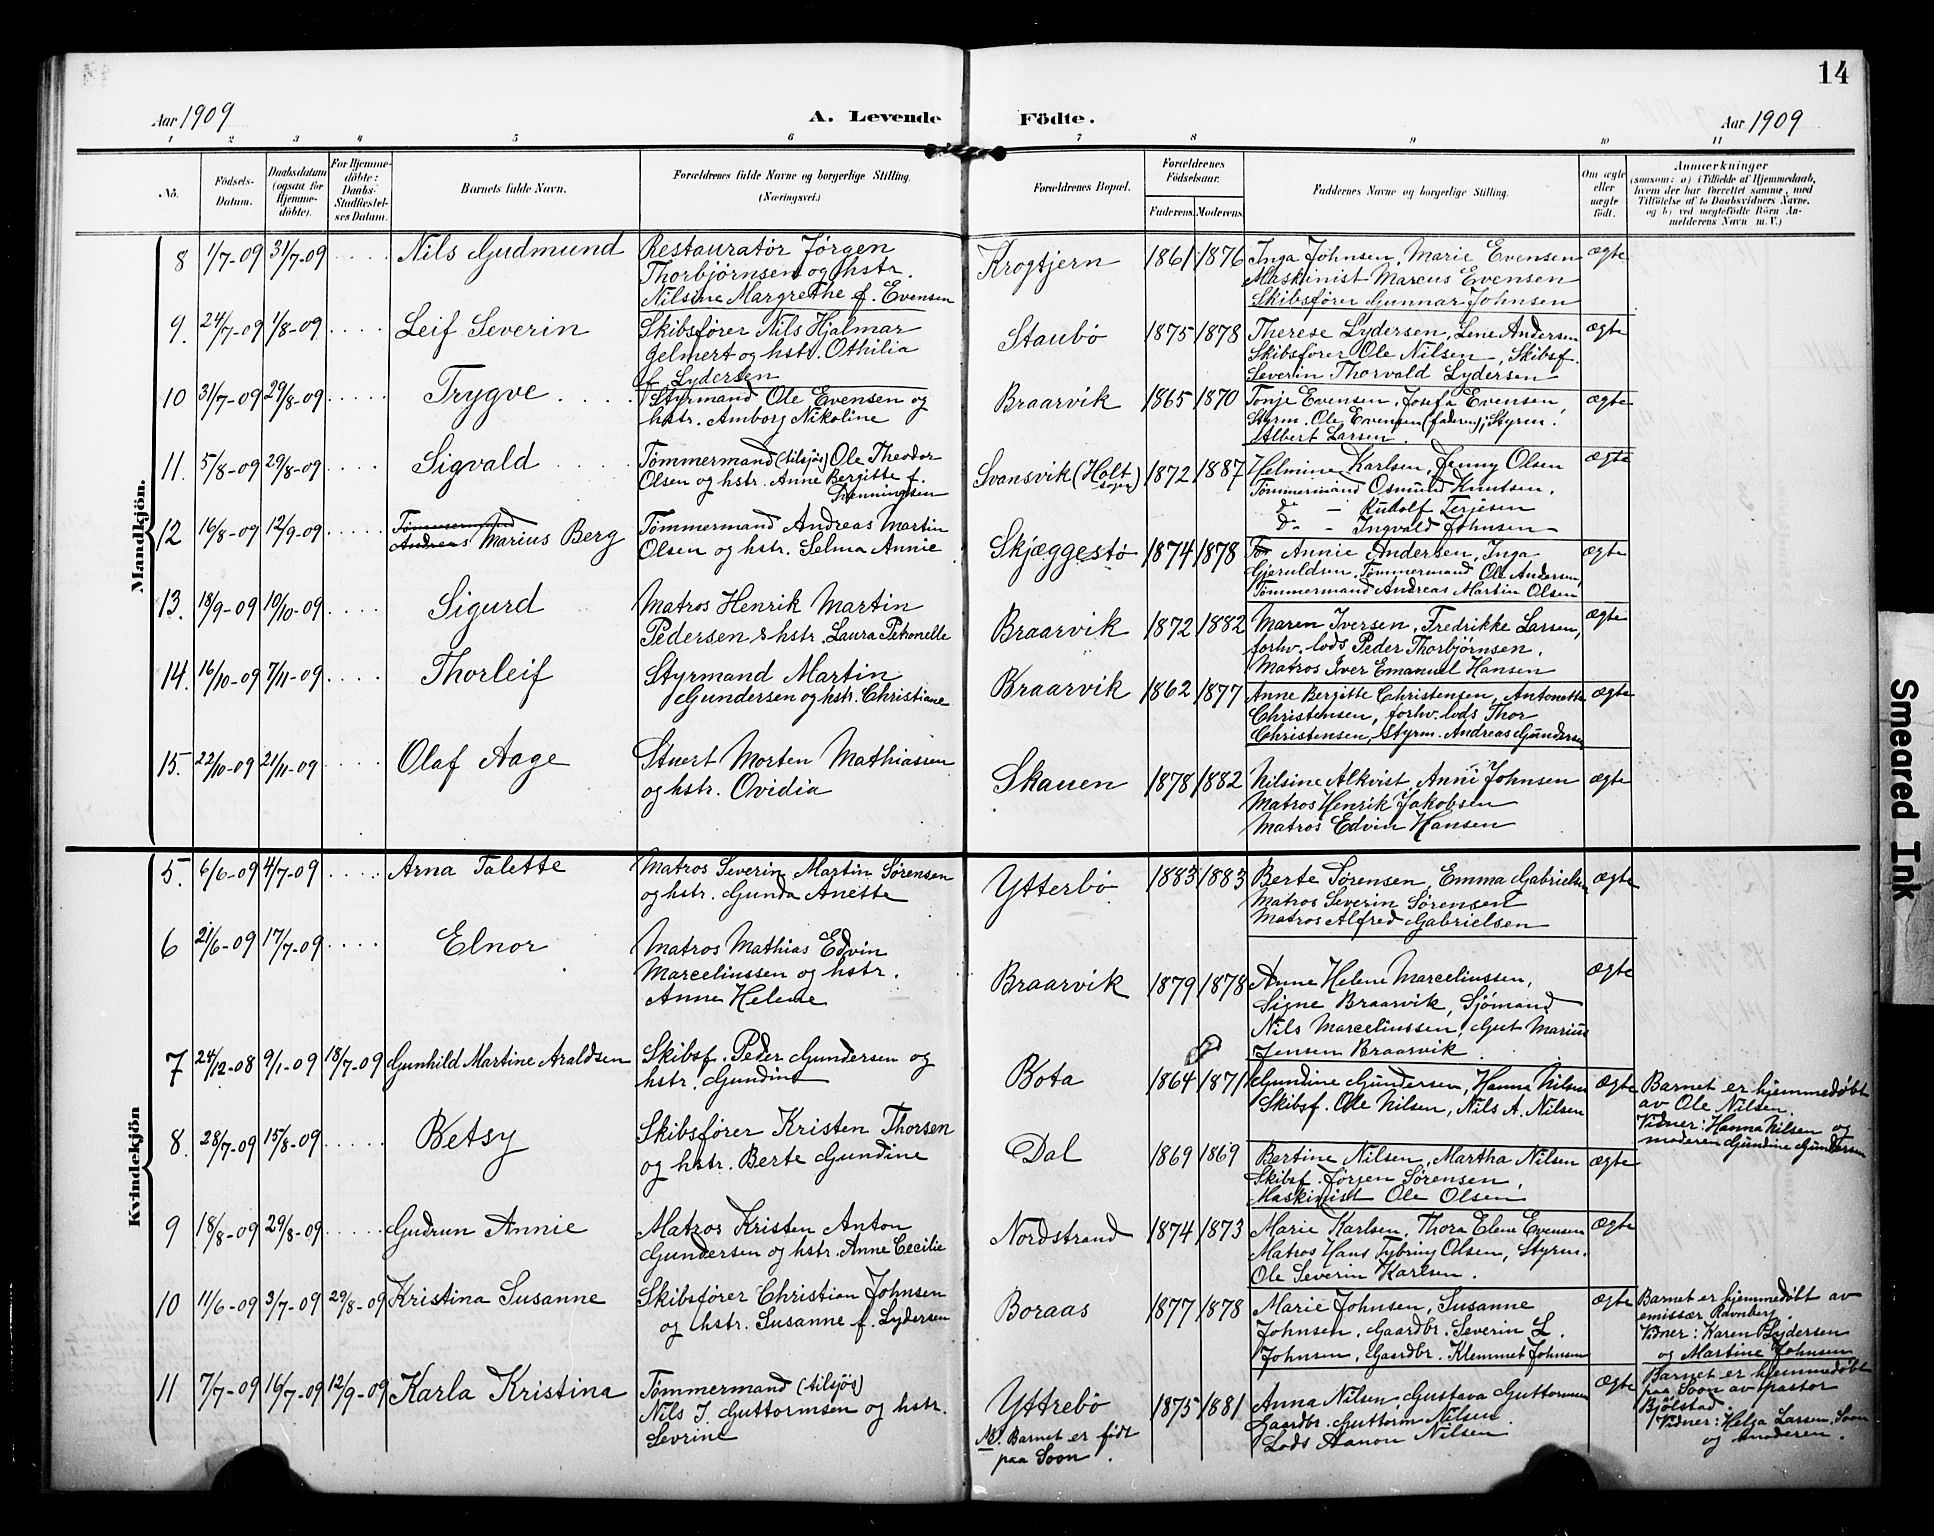 14
Aar 1909
A. Levende Födte.
Aar 1909
1 2 3 4 5 6 7 8 9 10 11
No.
Födsels-Datum.
Daabsdatum (ogsaa for Hjemme-döbte).
For Hjemme-döbte: Daabs-Stadfæstel-ses Datum.
Barnets fulde Navn.
Forældrenes fulde Navne og borgerlige Stilling. (Næringsvei.)
Forældrenes Bopæl.
Forældrenes Födselsaar.
Faderens. Moderens.
Faddernes Navne og borgerlige Stilling.
Om ægte eller uægte födt.
Anmærkninger
(saasom: a) i Tilfælde af Hjemmedaab, hvem der har forrettet samme, med Tilföielse af to Daabsvidners Navne, og b) ved uægtefödte Börn An-melderens Navn m. V.)
Mandkjön.
8 1/7-09 31/7-09 Nils Gudmund
Restauratør Jørgen
Thorbjørnsen og hstr.
Nilsine Margrethe f. Evensen
Krogtjern 1861 1876
Inga Johnsen, Marie Evensen
Maskinist Marcus Evensen
Skibsfører Gunnar Johnsen
ægte
9. 24/7-09 1/8-09 Leif Severin
Skibsfører Nils Hjalmar
Gelmert og hstr. Othilia
f. Lydersen
Staubø 1875 1878
Therese Lydersen, Lene Andersen
Skibsfører Ole Nilsen, Skibsf.
Severin Thorvald Lydersen
ægte
10 31/7-09 29/8-09 Trygve
Styrmand Ole Evensen og
hstr. Amborg Nikoline
Braarvik 1865 1870
Tonje Evensen, Josefa Evensen,
Styrm. Ole Evensen (faderen), Styrm.
Albert Larsen.
ægte
11. 5/8-09 29/8-09 Sigvald
Tømmermand (tilsjøs) Ole Theodor
Olsen og hstr. Anne Bergitte f.
Svansvik (Holt sogn) 1872 1887
Helmine Karlsen, Jenny Olsen
Tømmermand Osmund Knutsen,
do - Rudolf Terjesen
do - Ingvald Johnsen
ægte
12 16/8-09 12/9-09 Tømmermand
Andreas Marius Berg
Tømmermand Andreas Martin
Olsen og hstr. Selma Annie
Skjæggestø 1874 1878
Annie Andersen, Inga
Gjeruldsen, Tømmermand Ole Andersen,
Tømmermand Andreas Martin Olsen
ægte
13. 18/9-09 10/10-09 Sigurd
Matros Henrik Martin
Pedersen & hstr. Laura Petronelle
Braarvik 1872 1882
Maren Iversen, Fredrikke Larsen,
forhv. lods Peder Thorbjørnsen,
Matros Iver Emanuel Hansen
ægte
14. 16/10-09 7/11-09 Thorleif
Styrmand Martin
Gundersen og hstr. Christiane
Braarvik 1862 1877
Anne Bergitte Christensen, Antonette
Christensen, forhv. lods Thor
Christensen, Styrm. Andreas Gundersen
ægte
15. 22/10-09 21/11-09 Olaf Aage
Stuert Morten Mathiassen
og hstr. Ovidia
Skauen 1878 1882
Nilsine Alkvist, Anni Johnsen
Matros Henrik Jakobsen
Matros Edvin Hansen
ægte
Kvindekjön
5. 6/6-09 4/7-09 Arna Talette
Matros Severin Martin Sørensen
og hstr. Gunda Anette
Ytterbø 1883 1883
Berte Sørensen, Emma Gabrielsen
Matros Severin Sørensen
Matros Alfred Gabrielsen
ægte
6 21/6-09 17/7-09 Elnor
Matros Mathias Edvin
Marceliussen og hstr.
Anne Helene
Braarvik 1879 1878
Anne Helene Marceliussen,
Signe Braarvik, Sjømand
Nils Marceliussen, Gut Marius
Jensen Braarvik
ægte
7 24/12-08 9/1-09 18/7-09 Gunhild Martine Araldsen
Skibsf. Peder Gundersen og
hstr. Gundine
Bota 1864 1871
Gundine Gundersen, Hanna Nilsen
Skibsf. Ole Nilsen, Nils A. Nilsen
ægte
Barnet er hjemmedøbt
av Ole Nilsen.
Vidner: Hanna Nilsen og
moderen Gundine Gundersen
8. 28/7-09 15/8-09 Betsy
Skibsfører Kristen Thorsen
og hstr. Berte Gundine
Dal 1869 1869
Bertine Nilsen, Martha Nilsen
Skibsf. Jørgen Sørensen,
Maskinist Ole Olsen
ægte
9 18/8-09 29/8-09 Gudrun Annie
Matros Kristen Anton
Gundersen og hstr. Anne Cecilie
Nordstrand 1874 1873
Marie Karlsen, Thora Elene Evensen
Matros Hans Tybring Olsen, Styrm.
Ole Severin Karlsen.
ægte
10 11/6-09 3/7-09 29/8-09 Kristina Susanne
Skibsfører Christian Johnsen
og hstr. Susanne f. Lydersen
Boraas 1877 1878
Marie Johnsen, Susanne
Johnsen, Gaardbr. Severin L.
Johnsen, Gaardbr. Klemmet Johnsen
ægte
Barnet er hjemmedøbt av
emissær Ravnberg.
Vidner: Karen Lydersen
og Martine Johnsen
11 7/7-09 16/7-09 12/9-09 Karla Kristina
Tømmermand (tilsjøs)
Nils J. Guttormsen og hstr.
Sevrine
Yttrebø
NB. Barnet er født
paa Soon.
1875 1881
Anna Nilsen, Gustava Guttormsen
Gaardbr. Guttorm Nilsen
Lods Aanon Nilsen
ægte
Barnet er hjemmedøbt
paa Soon av pastor
Bjølstad.
Vidner: Helga Larsen, Soon
og moderen.
Smeared Ink